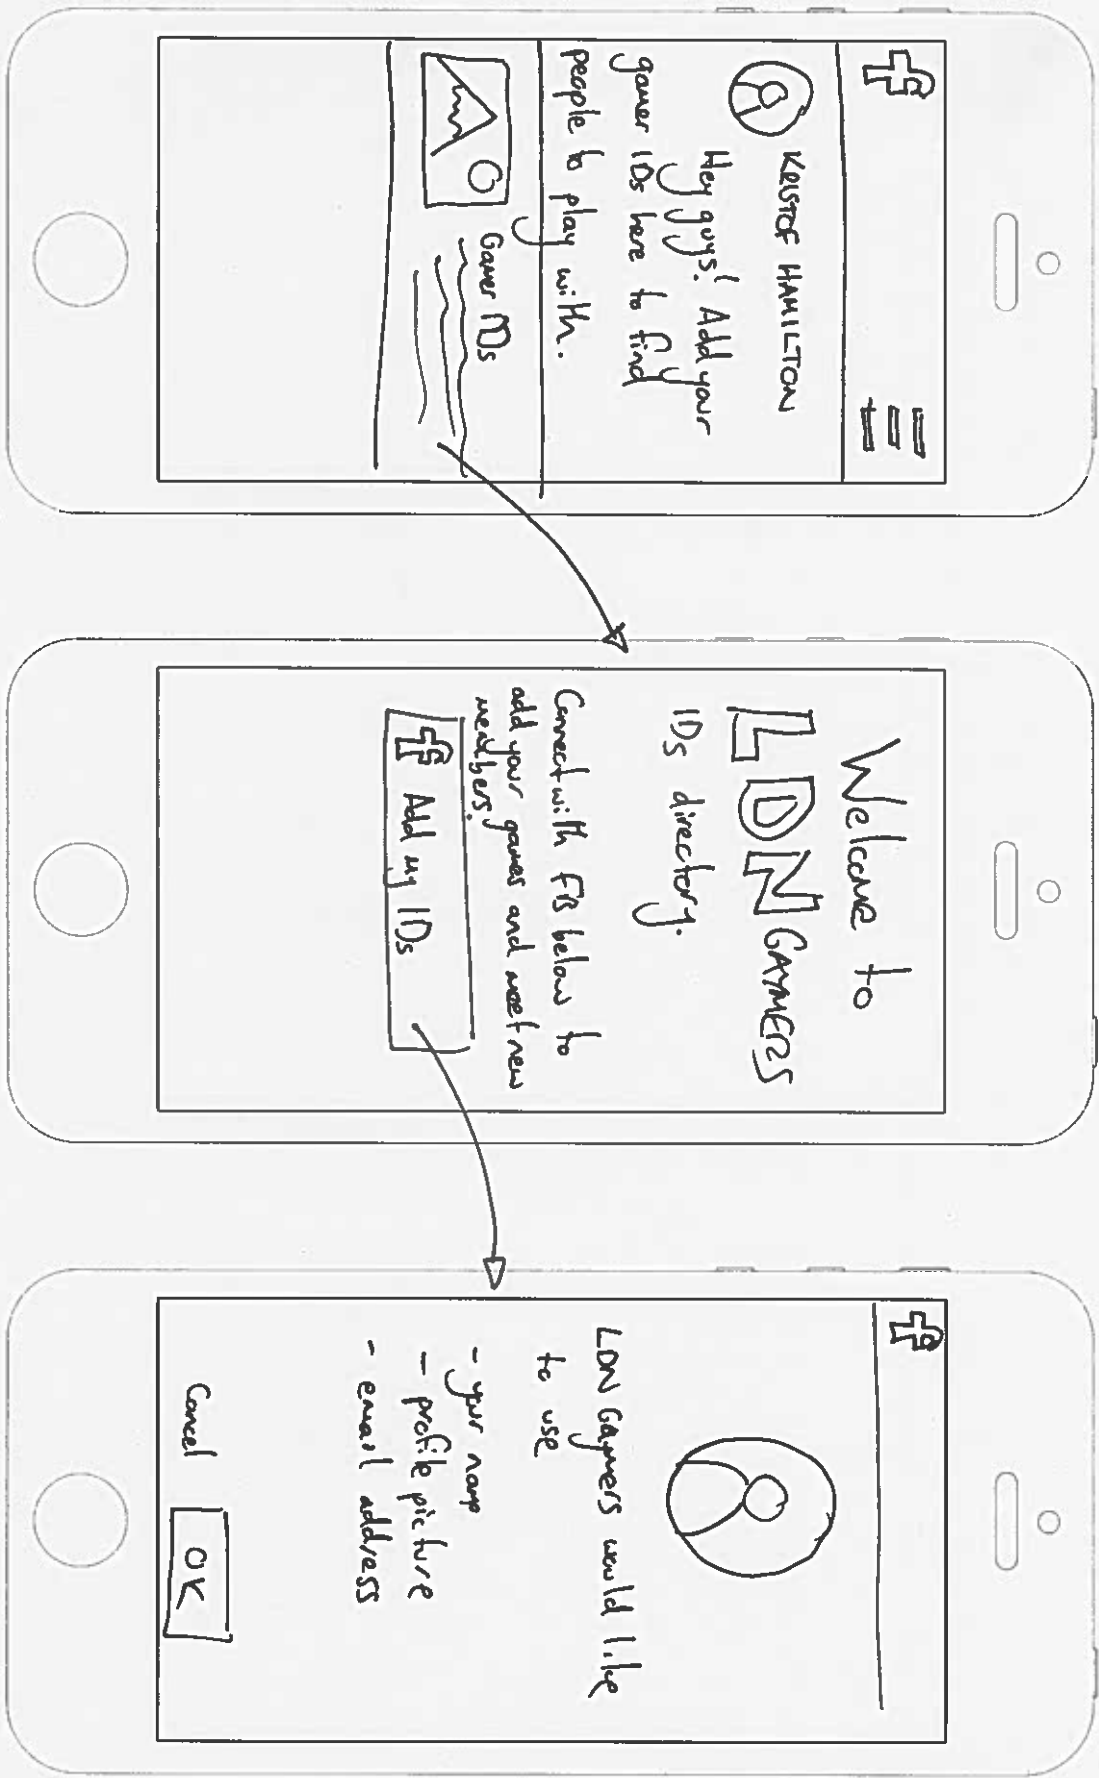 f
KRISTOF HAMILTON
Hey guys! Add your
gamer IDs here to find
people to play with.
Gamer IDs
Welcome to
LDN GAYMERS
IDs directory.
Connect with FB below to
add your games and meet new
members.
f Add my IDs
f
LDN Gaymers would like
to use
- your name
- profile picture
- email address
Cancel OK